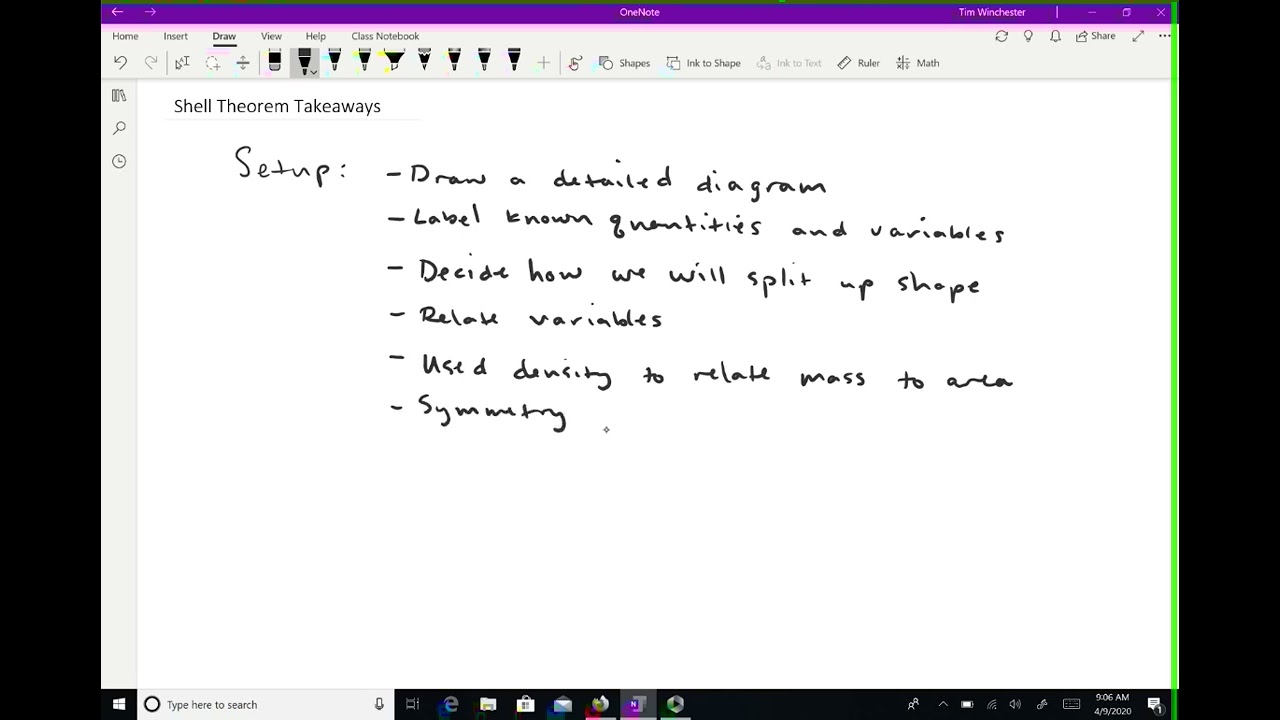 OneNote
Tim Winchester
Home Insert Draw View Help Class Notebook
Share
Shapes Ink to Shape Ink to Text Ruler Math
Shell Theorem Takeaways
Setup: - Draw a detailed diagram
- Label known quantities and variables
- Decide how we will split up shape
- Relate variables
- Used density to relate mass to area
- Symmetry
Type here to search
9:06 AM
4/9/2020